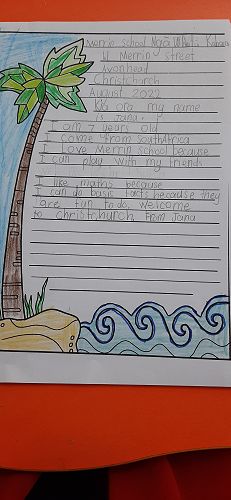 Merrin school Ngā
11 Merrin Street
Avonhead
Christchurch
August 2022
Kia ora my name
is Jana.
I am 7 years old
I come from South Africa
I Love Merrin school because
I can play with my friends
I like maths because
I can do basic facts because they
are fun to do. Welcome
to Christchurch From Jana